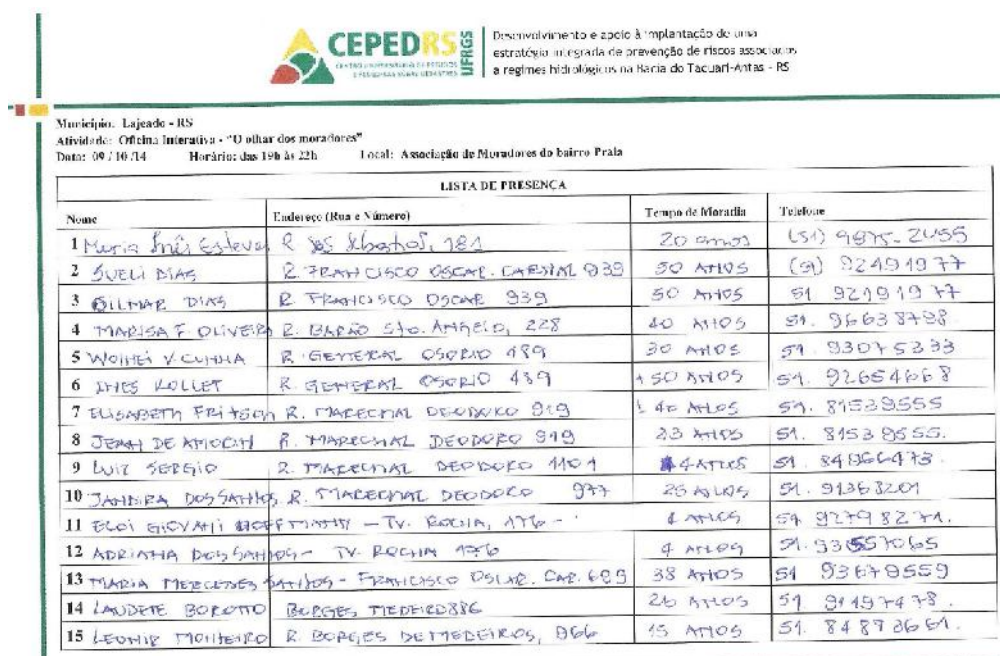 CEPEDRS UFRGS
Desenvolvimento e apoio à implantação de uma
estratégia integrada de prevenção de riscos associados
a regimes hidrológicos na Bacia do Tacuari-Antas - RS
Município: Lajeado - RS
Atividade: Oficina Interativa - "O olhar dos moradores"
Data: 09 / 10 /14 Horário: das 19h às 22h Local: Associação de Moradores do bairro Praia
LISTA DE PRESENÇA
Nome Endereço (Rua e Número) Tempo de Moradia Telefone
1 Maria Inês Esteves R 181 20 anos (51) 9875-2455
2 SUELI DIAS R. FRANCISCO OSCAR. 939 50 ANOS (51) 92491977
3 GILMAR DIAS R. FRANCISCO OSCAR 939 50 ANOS 51 92191977
4 MARISA F. OLIVEIRA R. BARÃO Sto. ANGELO, 228 40 ANOS 51. 96638738
5 V. CUNHA R. GENERAL OSORIO 489 30 ANOS 51. 93075333
6 INES KOLLET R. GENERAL OSORIO 439 + 50 ANOS 51. 92654668
7 ELISABETH FRITSCH R. MARECHAL DEODORO 919 ± 40 ANOS 51. 81539555
8 JEAN DE R. MARECHAL DEODORO 919 23 ANOS 51. 81539555.
9 LUIZ SERGIO R. MARECHAL DEODORO 1101 4 ANOS 51. 84966473
10 JANDIRA DOS SANTOS R. MARECHAL DEODORO 977 25 ANOS 51. 91363201
11 ELOI GIOVANI HOFFMANN - TV. ROCHA, 176 - 4 ANOS 51 92798271.
12 ADRIANA DOS SANTOS - TV. ROCHA 176 4 ANOS 51. 93557065
13 MARIA MERCEDES SANTOS - FRANCISCO OSCAR. CAR. 699 38 ANOS 51 93679559
14 LAUDETE BOROTTO BORGES MEDEIROS 886 26 ANOS 51 91497478.
15 LEONIR MONTEIRO R. BORGES DE MEDEIROS, 966 15 ANOS 51. 84893661.